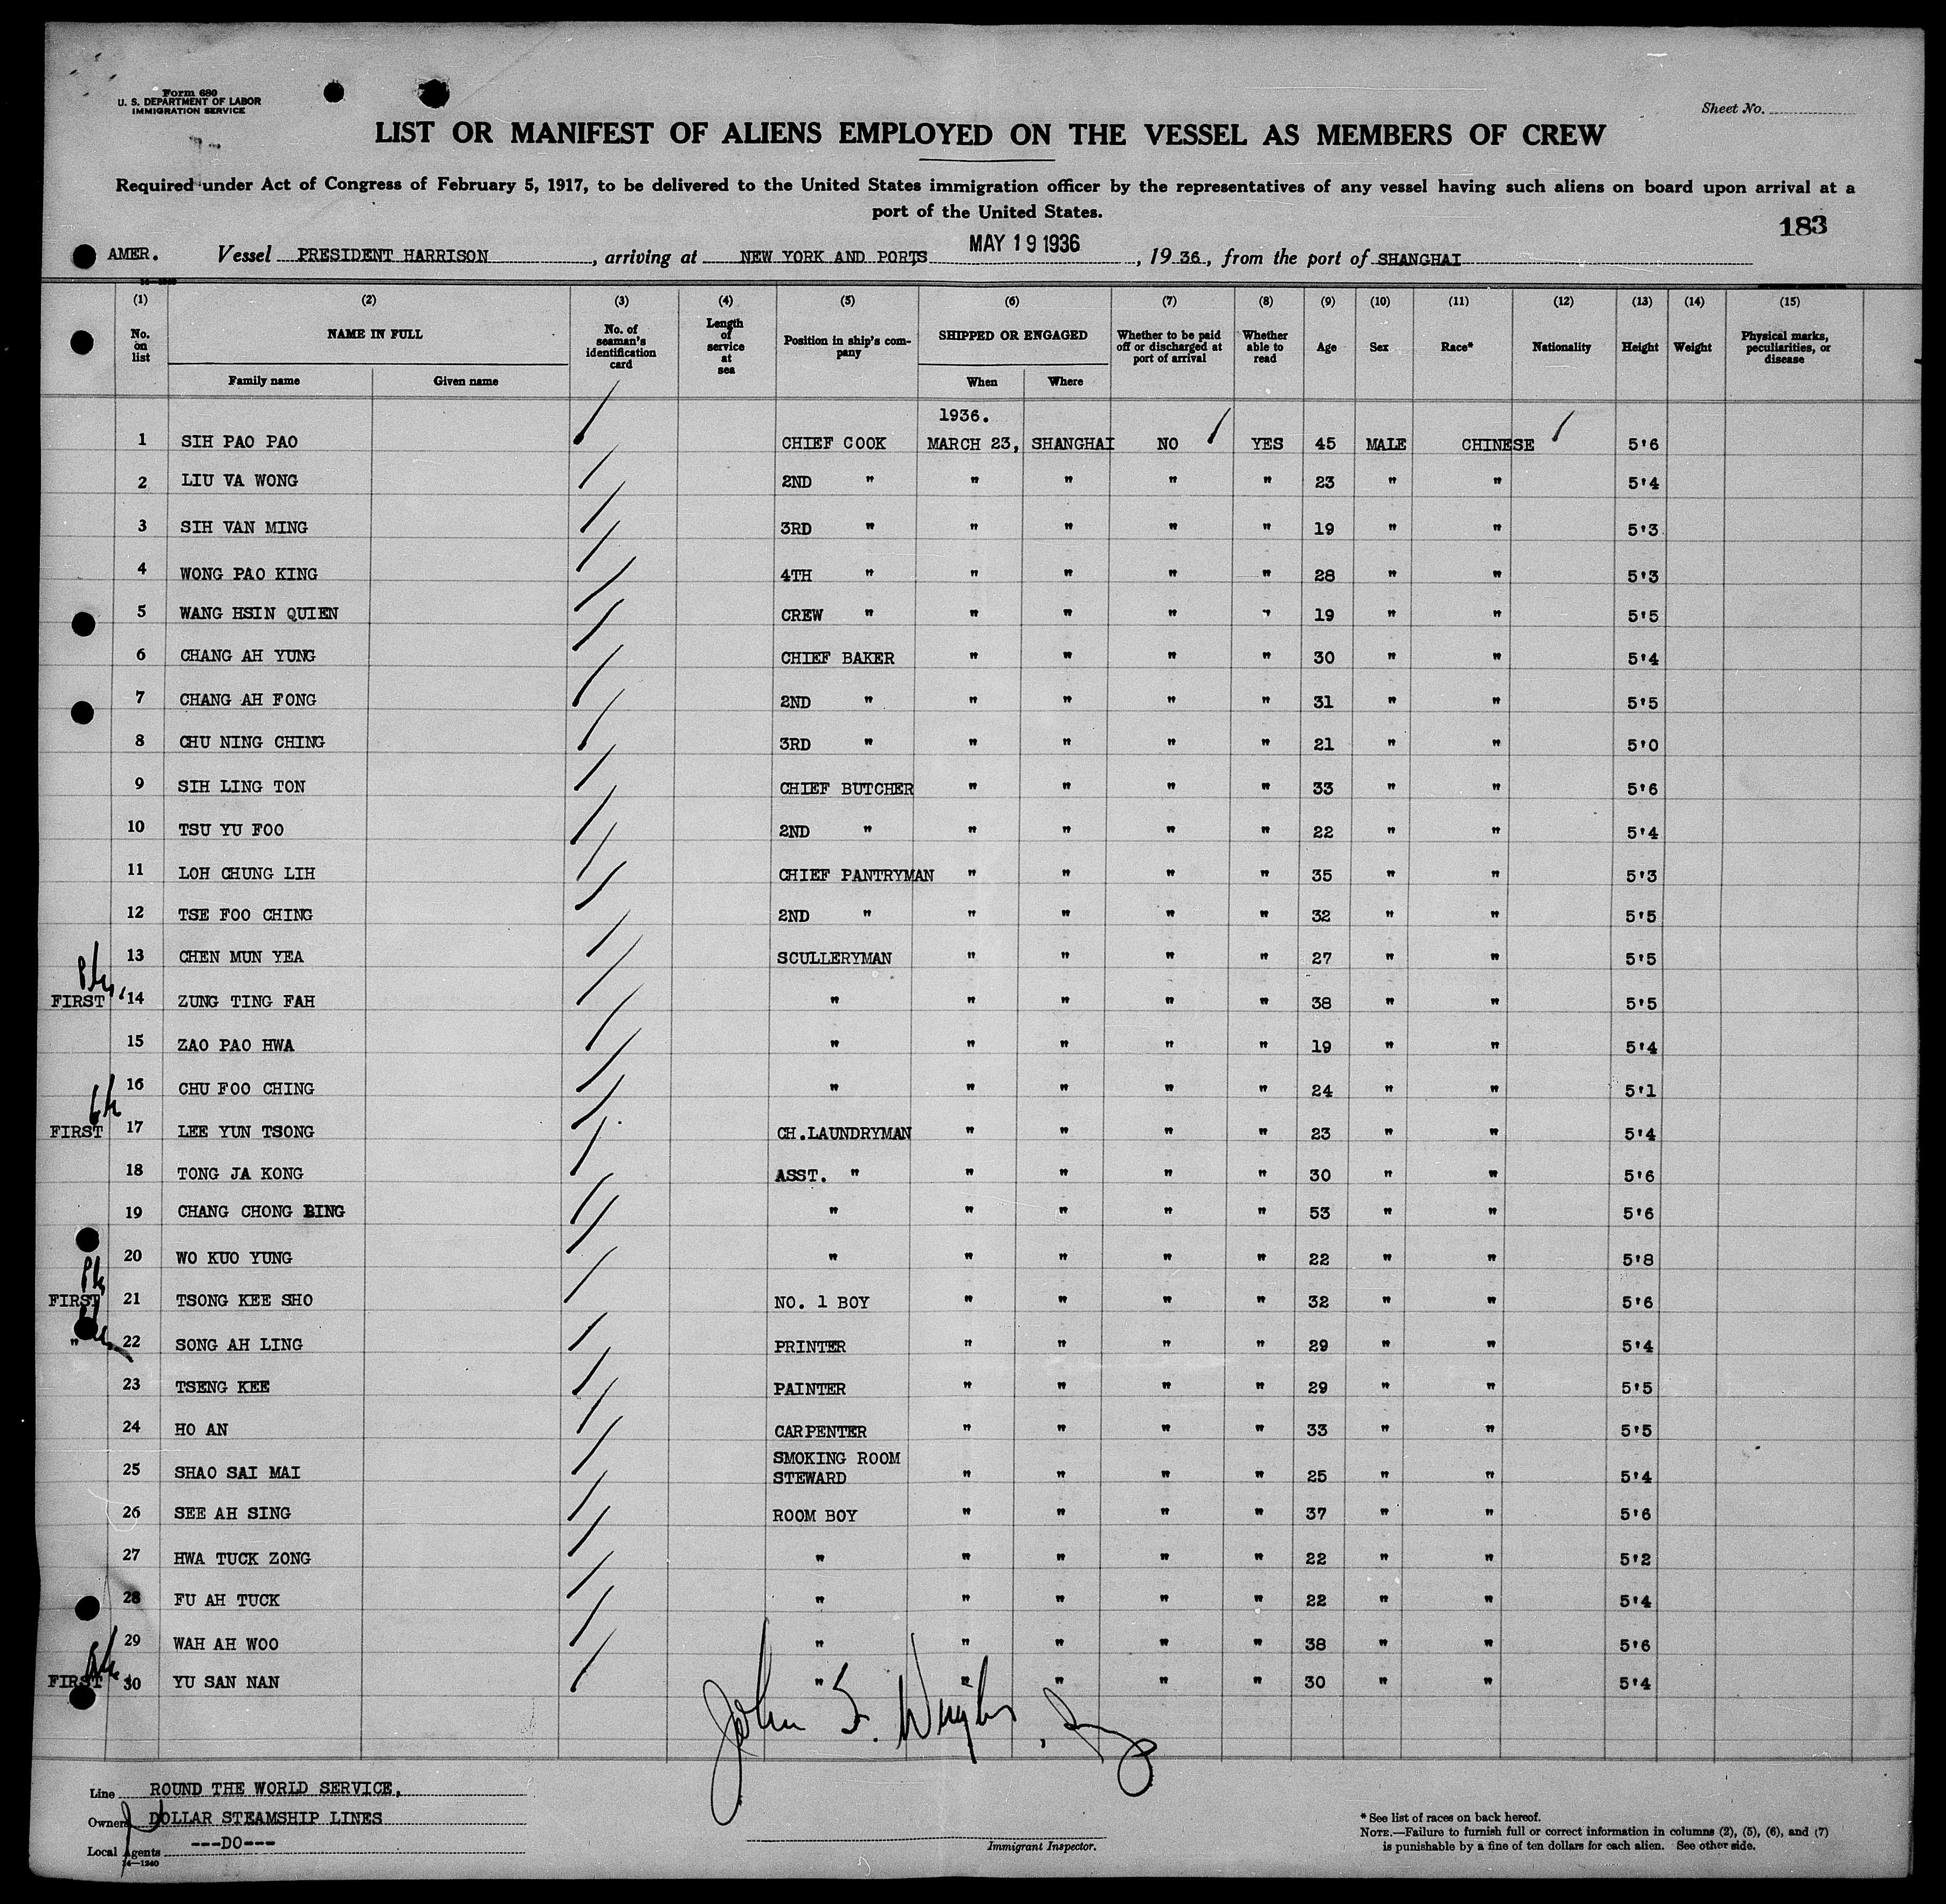 Form 680
U. S. DEPARTMENT OF LABOR
IMMIGRATION SERVICE
Sheet No.
LIST OR MANIFEST OF ALIENS EMPLOYED ON THE VESSEL AS MEMBERS OF CREW
Required under Act of Congress of February 5, 1917, to be delivered to the United States immigration officer by the representatives of any vessel having such aliens on board upon arrival at a
port of the United States.
183
MAY 19 1936
AMER. Vessel PRESIDENT HARRISON, arriving at NEW YORK AND PORTS, 1936, from the port of SHANGHAI
(1) (2) (3) (4) (5) (6) (7) (8) (9) (10) (11) (12) (13) (14) (15)
No. on list NAME IN FULL No. of seaman's identification card Length of service at sea Position in ship's company SHIPPED OR ENGAGED Whether to be paid off or discharged at port of arrival Whether able to read Age Sex Race* Nationality Height Weight Physical marks, peculiarities, or disease
Family name Given name When Where
1936.
1 SIH PAO PAO CHIEF COOK MARCH 23, SHANGHAI NO YES 45 MALE CHINESE 5'6
2 LIU VA WONG 2ND " " " " " 23 " " 5'4
3 SIH VAN MING 3RD " " " " " 19 " " 5'3
4 WONG PAO KING 4TH " " " " " 28 " " 5'3
5 WANG HSIN QUIEN CREW " " " " " 19 " " 5'5
6 CHANG AH YUNG CHIEF BAKER " " " " 30 " " 5'4
7 CHANG AH FONG 2ND " " " " " 31 " " 5'5
8 CHU NING CHING 3RD " " " " " 21 " " 5'0
9 SIH LING TON CHIEF BUTCHER " " " " 33 " " 5'6
10 TSU YU FOO 2ND " " " " " 22 " " 5'4
11 LOH CHUNG LIH CHIEF PANTRYMAN " " " " 35 " " 5'3
12 TSE FOO CHING 2ND " " " " " 32 " " 5'5
13 CHEN MUN YEA SCULLERYMAN " " " " 27 " " 5'5
FIRST 14 ZUNG TING FAH " " " " " 38 " " 5'5
15 ZAO PAO HWA " " " " " 19 " " 5'4
16 CHU FOO CHING " " " " " 24 " " 5'1
FIRST 17 LEE YUN TSONG CH.LAUNDRYMAN " " " " 23 " " 5'4
18 TONG JA KONG ASST. " " " " " 30 " " 5'6
19 CHANG CHONG BING " " " " " 53 " " 5'6
20 WO KUO YUNG " " " " " 22 " " 5'8
FIRST 21 TSONG KEE SHO NO. 1 BOY " " " " 32 " " 5'6
" 22 SONG AH LING PRINTER " " " " 29 " " 5'4
23 TSENG KEE PAINTER " " " " 29 " " 5'5
24 HO AN CARPENTER " " " " 33 " " 5'5
25 SHAO SAI MAI SMOKING ROOM STEWARD " " " " 25 " " 5'4
26 SEE AH SING ROOM BOY " " " " 37 " " 5'6
27 HWA TUCK ZONG " " " " " 22 " " 5'2
28 FU AH TUCK " " " " " 22 " " 5'4
29 WAH AH WOO " " " " " 38 " " 5'6
FIRST 30 YU SAN NAN " " " " " 30 " " 5'4
John
Line ROUND THE WORLD SERVICE,
Owners DOLLAR STEAMSHIP LINES
Local Agents ---DO---
14—1240
Immigrant Inspector.
* See list of races on back hereof.
NOTE.—Failure to furnish full or correct information in columns (2), (5), (6), and (7)
is punishable by a fine of ten dollars for each alien. See other side.